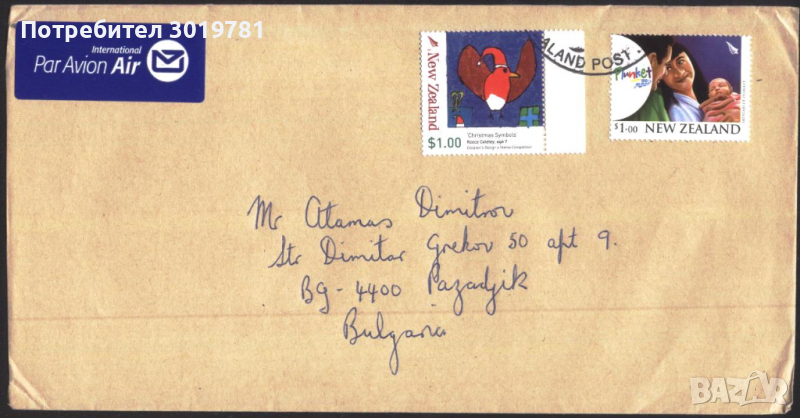 Потребител 3019781
International
Par Avion Air
New Zealand
$1.00
'Christmas Symbols'
Children's Design a Stamp Competition
ALAND POST
Plunket
$1.00 NEW ZEALAND
Mr Atamas Dimitrov
Str Dimitar Grekov 50 apt 9.
BG-4400 Pazadjik
Bulgaria
BAZAR